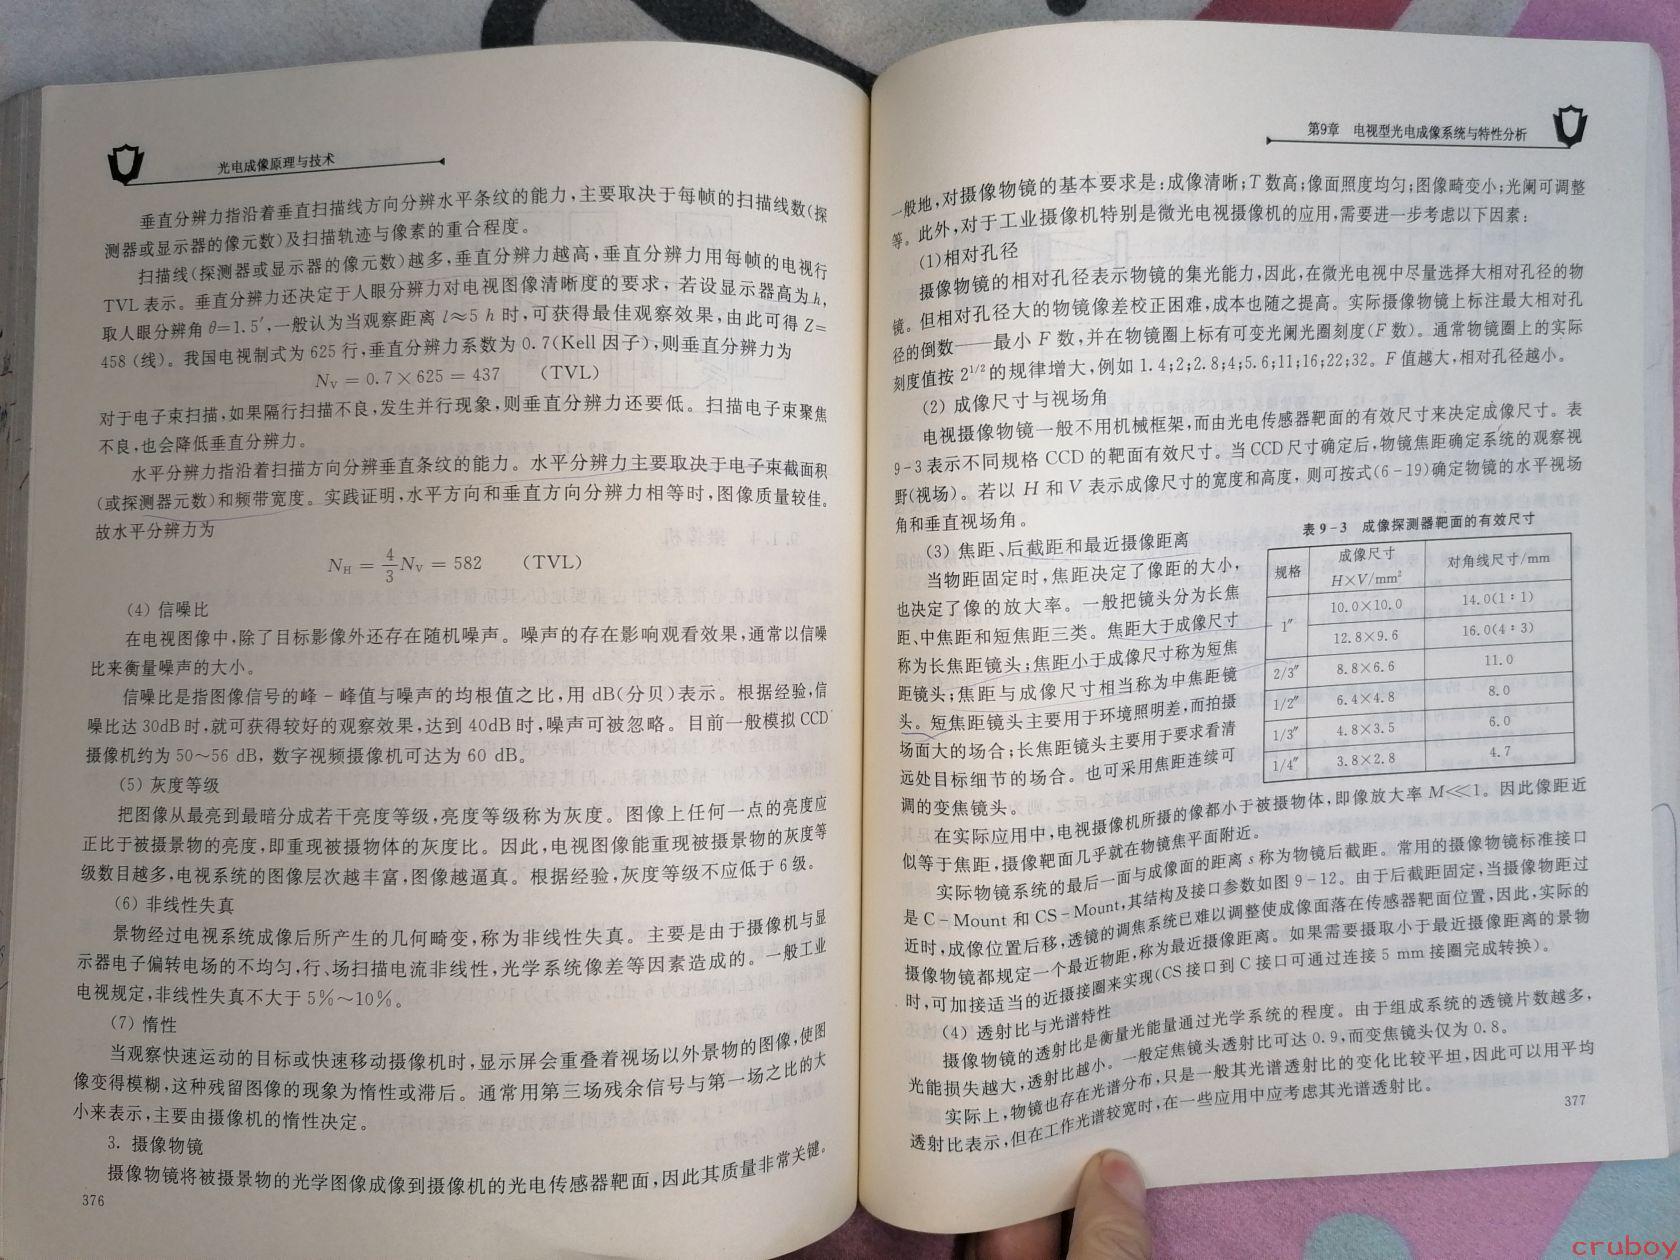 光电成像原理与技术
垂直分辨力指沿着垂直扫描线方向分辨水平条纹的能力,主要取决于每帧的扫描线数(探
测器或显示器的像元数)及扫描轨迹与像素的重合程度。
扫描线(探测器或显示器的像元数)越多,垂直分辨力越高,垂直分辨力用每帧的电视行
TVL 表示。垂直分辨力还决定于人眼分辨力对电视图像清晰度的要求, 若设显示器高为 h,
取人眼分辨角 θ=1.5′,一般认为当观察距离 l≈5 h 时,可获得最佳观察效果,由此可得 Z=
458 (线)。我国电视制式为 625 行,垂直分辨力系数为 0.7(Kell 因子),则垂直分辨力为
N_V = 0.7×625 = 437 (TVL)
对于电子束扫描,如果隔行扫描不良,发生并行现象,则垂直分辨力还要低。扫描电子束聚焦
不良,也会降低垂直分辨力。
水平分辨力指沿着扫描方向分辨垂直条纹的能力。水平分辨力主要取决于电子束截面积
(或探测器元数)和频带宽度。实践证明,水平方向和垂直方向分辨力相等时,图像质量较佳。
故水平分辨力为
N_H = 4/3 N_V = 582 (TVL)
(4) 信噪比
在电视图像中,除了目标影像外还存在随机噪声。噪声的存在影响观看效果,通常以信噪
比来衡量噪声的大小。
信噪比是指图像信号的峰－峰值与噪声的均根值之比,用 dB(分贝)表示。根据经验,信
噪比达 30dB 时,就可获得较好的观察效果,达到 40dB 时,噪声可被忽略。目前一般模拟 CCD
摄像机约为 50～56 dB, 数字视频摄像机可达为 60 dB。
(5) 灰度等级
把图像从最亮到最暗分成若干亮度等级,亮度等级称为灰度。图像上任何一点的亮度应
正比于被摄景物的亮度,即重现被摄物体的灰度比。因此,电视图像能重现被摄景物的灰度等
级数目越多,电视系统的图像层次越丰富,图像越逼真。根据经验,灰度等级不应低于 6 级。
(6) 非线性失真
景物经过电视系统成像后所产生的几何畸变,称为非线性失真。主要是由于摄像机与显
示器电子偏转电场的不均匀,行、场扫描电流非线性,光学系统像差等因素造成的。一般工业
电视规定,非线性失真不大于 5%～10%。
(7) 惰性
当观察快速运动的目标或快速移动摄像机时,显示屏会重叠着视场以外景物的图像,使图
像变得模糊,这种残留图像的现象为惰性或滞后。通常用第三场残余信号与第一场之比的大
小来表示,主要由摄像机的惰性决定。
3. 摄像物镜
摄像物镜将被摄景物的光学图像成像到摄像机的光电传感器靶面,因此其质量非常关键。
376
第9章 电视型光电成像系统与特性分析
一般地,对摄像物镜的基本要求是:成像清晰;T 数高;像面照度均匀;图像畸变小;光阑可调整
等。此外,对于工业摄像机特别是微光电视摄像机的应用,需要进一步考虑以下因素:
(1)相对孔径
摄像物镜的相对孔径表示物镜的集光能力,因此,在微光电视中尽量选择大相对孔径的物
镜。但相对孔径大的物镜像差校正困难,成本也随之提高。实际摄像物镜上标注最大相对孔
径的倒数——最小 F 数,并在物镜圈上标有可变光阑光圈刻度(F 数)。通常物镜圈上的实际
刻度值按 2^{1/2} 的规律增大,例如 1.4;2;2.8;4;5.6;11;16;22;32。F 值越大,相对孔径越小。
(2) 成像尺寸与视场角
电视摄像物镜一般不用机械框架,而由光电传感器靶面的有效尺寸来决定成像尺寸。表
9－3 表示不同规格 CCD 的靶面有效尺寸。当 CCD 尺寸确定后,物镜焦距确定系统的观察视
野(视场)。若以 H 和 V 表示成像尺寸的宽度和高度, 则可按式(6－19)确定物镜的水平视场
角和垂直视场角。
(3) 焦距、后截距和最近摄像距离
当物距固定时,焦距决定了像距的大小,
也决定了像的放大率。一般把镜头分为长焦
距、中焦距和短焦距三类。焦距大于成像尺寸
称为长焦距镜头;焦距小于成像尺寸称为短焦
距镜头;焦距与成像尺寸相当称为中焦距镜
头。短焦距镜头主要用于环境照明差,而拍摄
场面大的场合;长焦距镜头主要用于要求看清
远处目标细节的场合。也可采用焦距连续可
调的变焦镜头。
表 9－3 成像探测器靶面的有效尺寸
规格 成像尺寸 H×V/mm² 对角线尺寸/mm
1″ 10.0×10.0 14.0(1∶1)
12.8×9.6 16.0(4∶3)
2/3″ 8.8×6.6 11.0
1/2″ 6.4×4.8 8.0
1/3″ 4.8×3.5 6.0
1/4″ 3.8×2.8 4.7
在实际应用中,电视摄像机所摄的像都小于被摄物体,即像放大率 M≪1。因此像距近
似等于焦距,摄像靶面几乎就在物镜焦平面附近。
实际物镜系统的最后一面与成像面的距离 s 称为物镜后截距。常用的摄像物镜标准接口
是 C－Mount 和 CS－Mount,其结构及接口参数如图 9－12。由于后截距固定,当摄像物距过
近时,成像位置后移,透镜的调焦系统已难以调整使成像面落在传感器靶面位置,因此,实际的
摄像物镜都规定一个最近物距,称为最近摄像距离。如果需要摄取小于最近摄像距离的景物
时,可加接适当的近摄接圈来实现(CS 接口到 C 接口可通过连接 5 mm 接圈完成转换)。
(4) 透射比与光谱特性
摄像物镜的透射比是衡量光能量通过光学系统的程度。由于组成系统的透镜片数越多,
光能损失越大,透射比越小。一般定焦镜头透射比可达 0.9,而变焦镜头仅为 0.8。
实际上,物镜也存在光谱分布,只是一般其光谱透射比的变化比较平坦,因此可以用平均
透射比表示,但在工作光谱较宽时,在一些应用中应考虑其光谱透射比。
377
cruboy